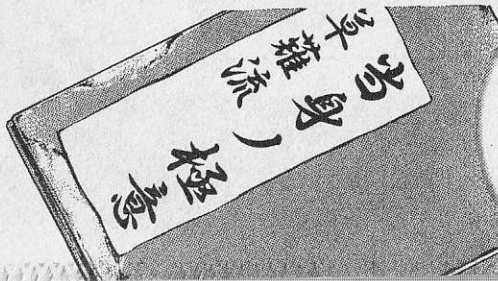 当身ノ極意
草薙流